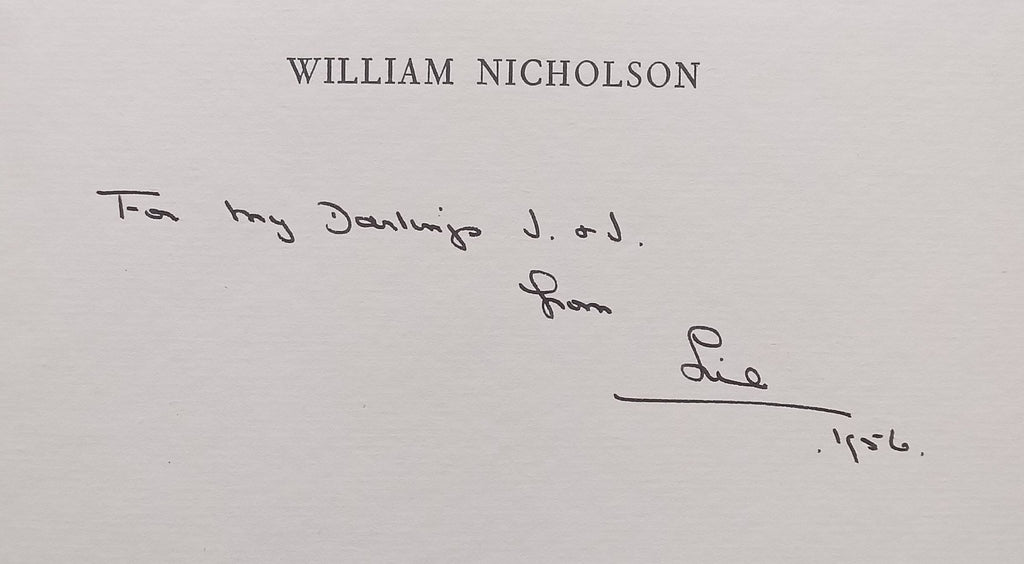 WILLIAM NICHOLSON
For my Darlings J. & J.
from
.1956.